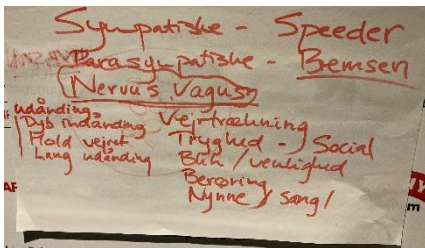 Sympatiske - Speeder
Parasympatiske - Bemsen
Nervus Vagus
udånding
Dyb indånding
Hold vejret
Lang udånding
Vejrtrækning
Tryghed - Social
Blik / venlighed
Berøring
Nynne / sang /